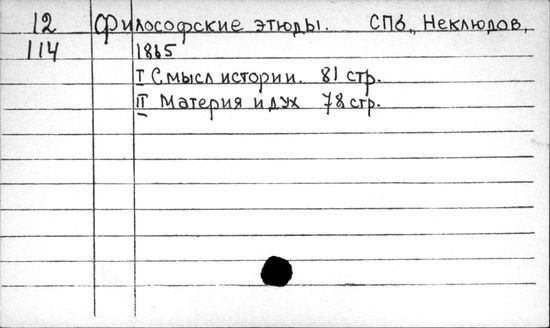 12 Философские этюды. СПб., Неклюдов,
114 1865
I Смысл истории. 81 стр.
II Материя и дух 78 стр.